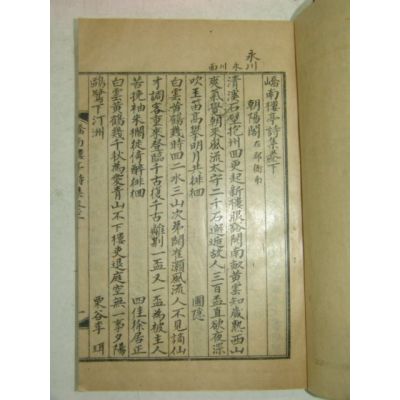 永川
永川面
嶠南樓亭詩集卷下
朝陽閣 在郡衙南
清溪石壁抱州回更起新樓眼豁開南畝黃雲知歲熟西山
爽氣覺朝來風流太守二千石邂逅故人三百盃直欲夜深
吹玉笛高攀明月共徘徊 圃隱
白雲黃鶴幾時回一水三山次第開崔灝風流人不見謫仙
才調客重來登臨千古復千古離別一盃又一盃為被主人
苦挽袖朱闌徙倚醉徘徊 四佳徐居正
白雲黃鶴幾千秋為愛青山不下樓吏退庭空無一事夕陽
鷗鷺下汀洲 栗谷李珥
嶠南樓亭詩集